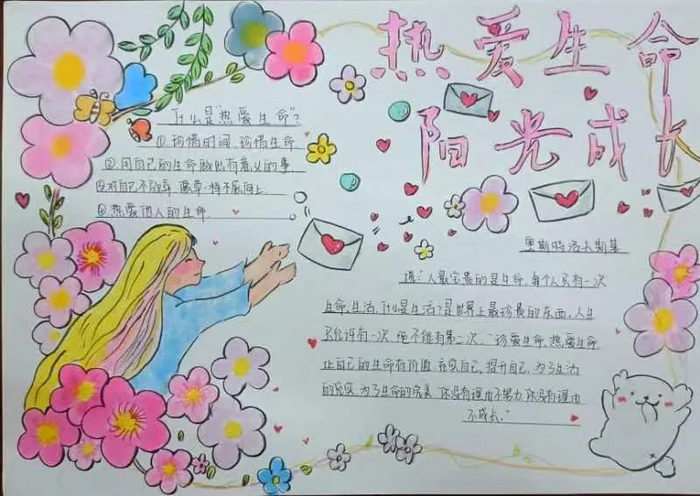 热爱生命
阳光成长
什么是"热爱生命"?
①珍惜时间,珍惜生命
②用自己的生命做出有意义的事
③对自己不放弃,像草一样不屈向上
④热爱他人的生命
奥斯特洛夫斯基
说:"人最宝贵的是生命,每个人只有一次
生命,生活,什么是生活?是世界上最珍贵的东西,人生
只允许有一次,但不能有第二次."珍爱生命,热爱生命
让自己的生命有价值,充实自己,提升自己,为了生活
的充实,为了生命的完美,你没有理由不努力,你没有理由
不成长."